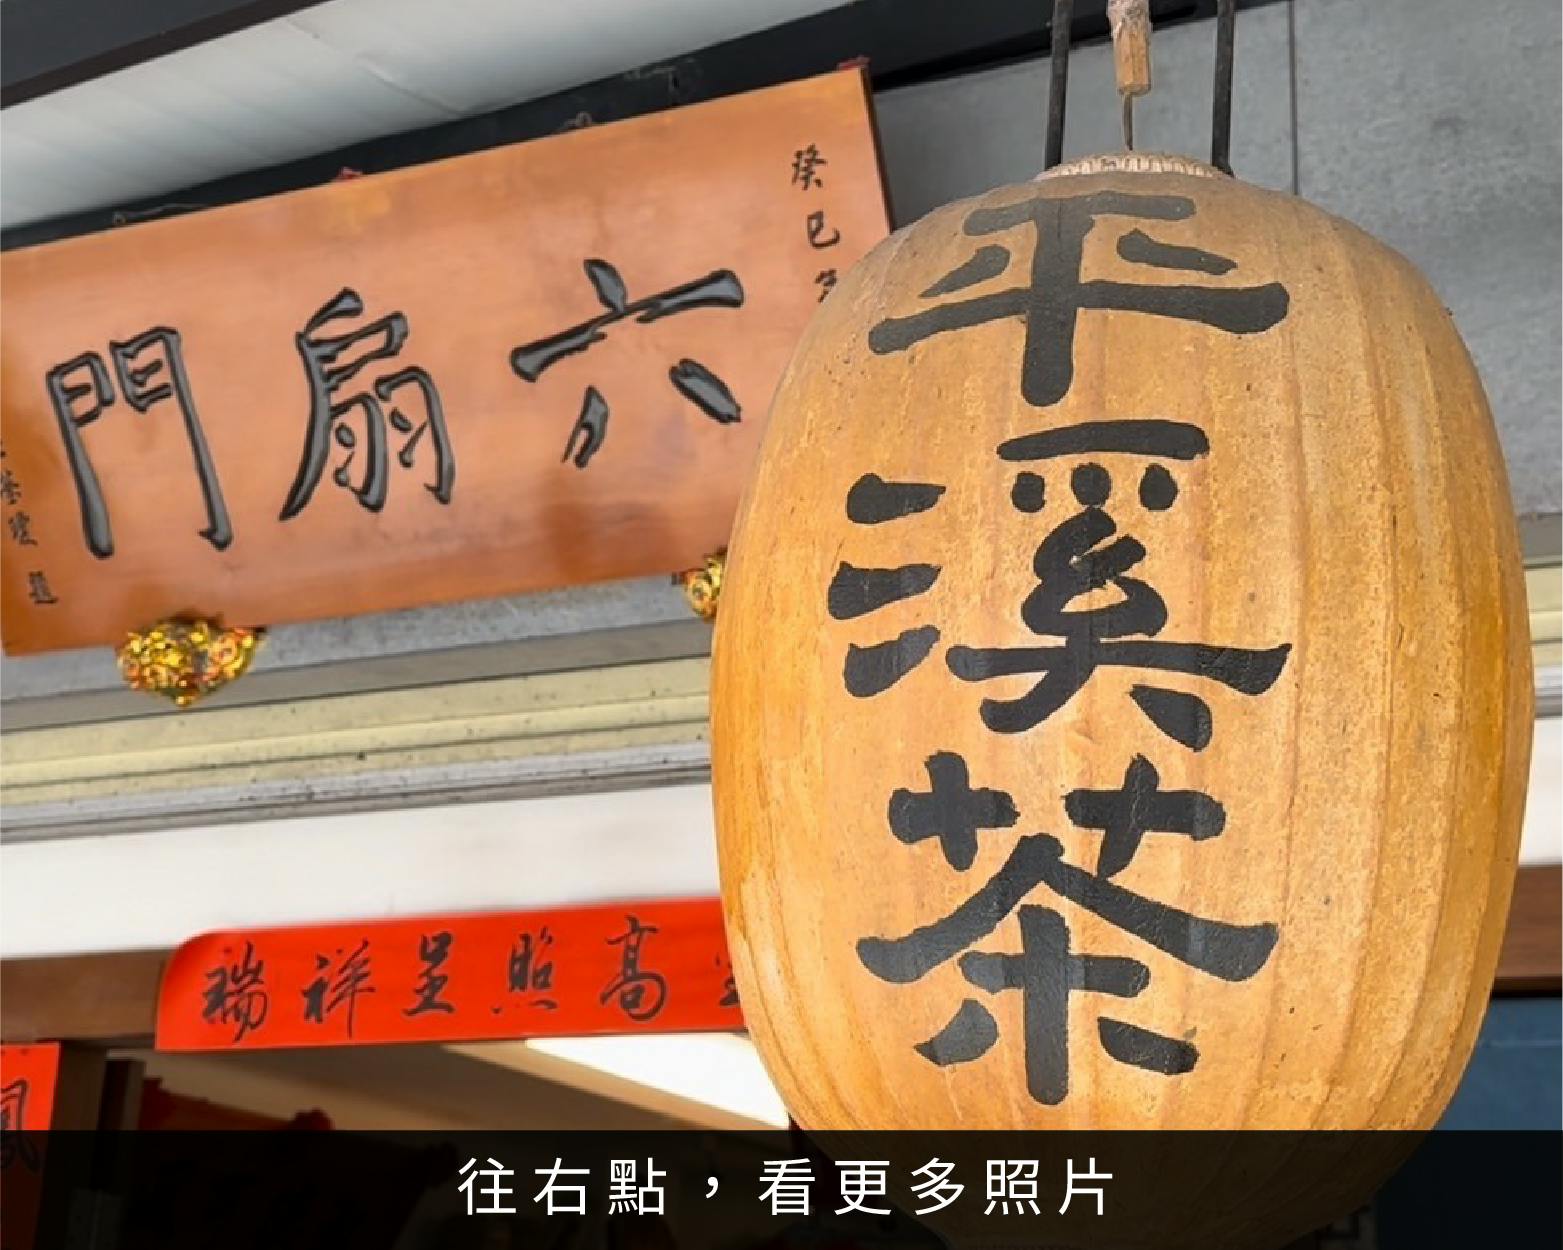 六扇門
癸巳年
題
平溪茶
高照呈祥瑞
鳳
往右點，看更多照片